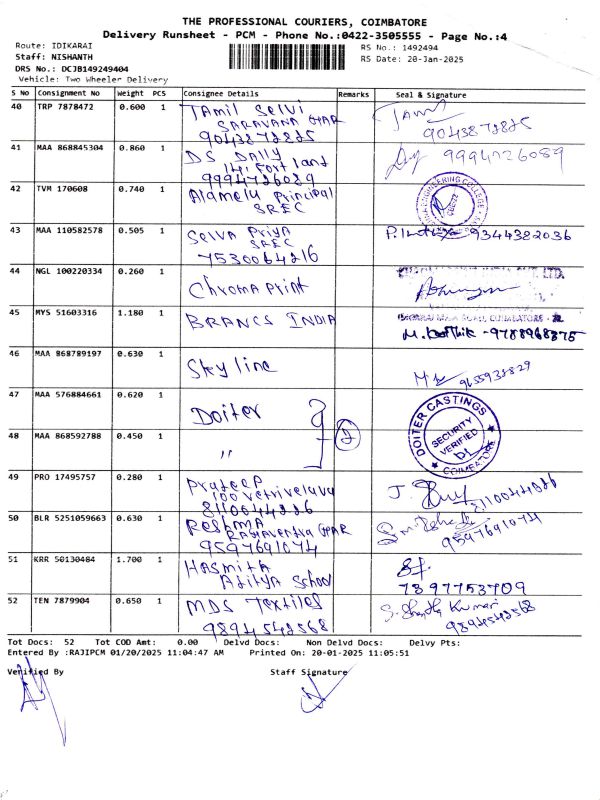 THE PROFESSIONAL COURIERS, COIMBATORE
Delivery Runsheet - PCM - Phone No.:0422-3505555 - Page No.:4
Route: IDIKARAI
RS No.: 1492494
Staff: NISHANTH
RS Date: 20-Jan-2025
DRS No.: DCJB149249404
Vehicle: Two Wheeler Delivery
S No Consignment No Weight PCS Consignee Details Remarks Seal & Signature
40 TRP 7878472 0.600 1 Tamil Selvi
SARAVANA
9043872825 9043872825
41 MAA 868845304 0.860 1 DS Daily
Fort land
9994726089 9994726089
42 TVM 170608 0.740 1 Alamelu Principal
SREC
43 MAA 110582578 0.505 1 Selva Priya 9344382036
SREC
7530064216
44 NGL 100220334 0.260 1 Chroma Print
45 MYS 51603316 1.180 1 BRANCS INDIA COIMBATORE
M. Karthik - 9788968375
46 MAA 868789197 0.630 1 Sky line
9655938829
47 MAA 576884661 0.620 1 Doiter
48 MAA 868592788 0.450 1 " 2
DOITER CASTINGS
SECURITY
VERIFIED
COIMBATORE
49 PRO 17495757 0.280 1 Prateep
100 vetrivelava
8110044886
50 BLR 5251059663 0.630 1 Reshma
9597691074 9597691074
51 KRR 50130484 1.700 1 Hasmita
Aditya School 7397753709
52 TEN 7879904 0.650 1 MDS Textiles S. Shantha Kumari
9894542568 9894542568
Tot Docs: 52 Tot COD Amt: 0.00 Delvd Docs: Non Delvd Docs: Delvy Pts:
Entered By :RAJIPCM 01/20/2025 11:04:47 AM Printed On: 20-01-2025 11:05:51
Verified By Staff Signature